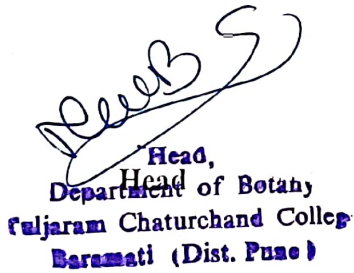 Head,
Head
Department of Botany
Tuljaram Chaturchand Colleg
Baramati (Dist. Pune)